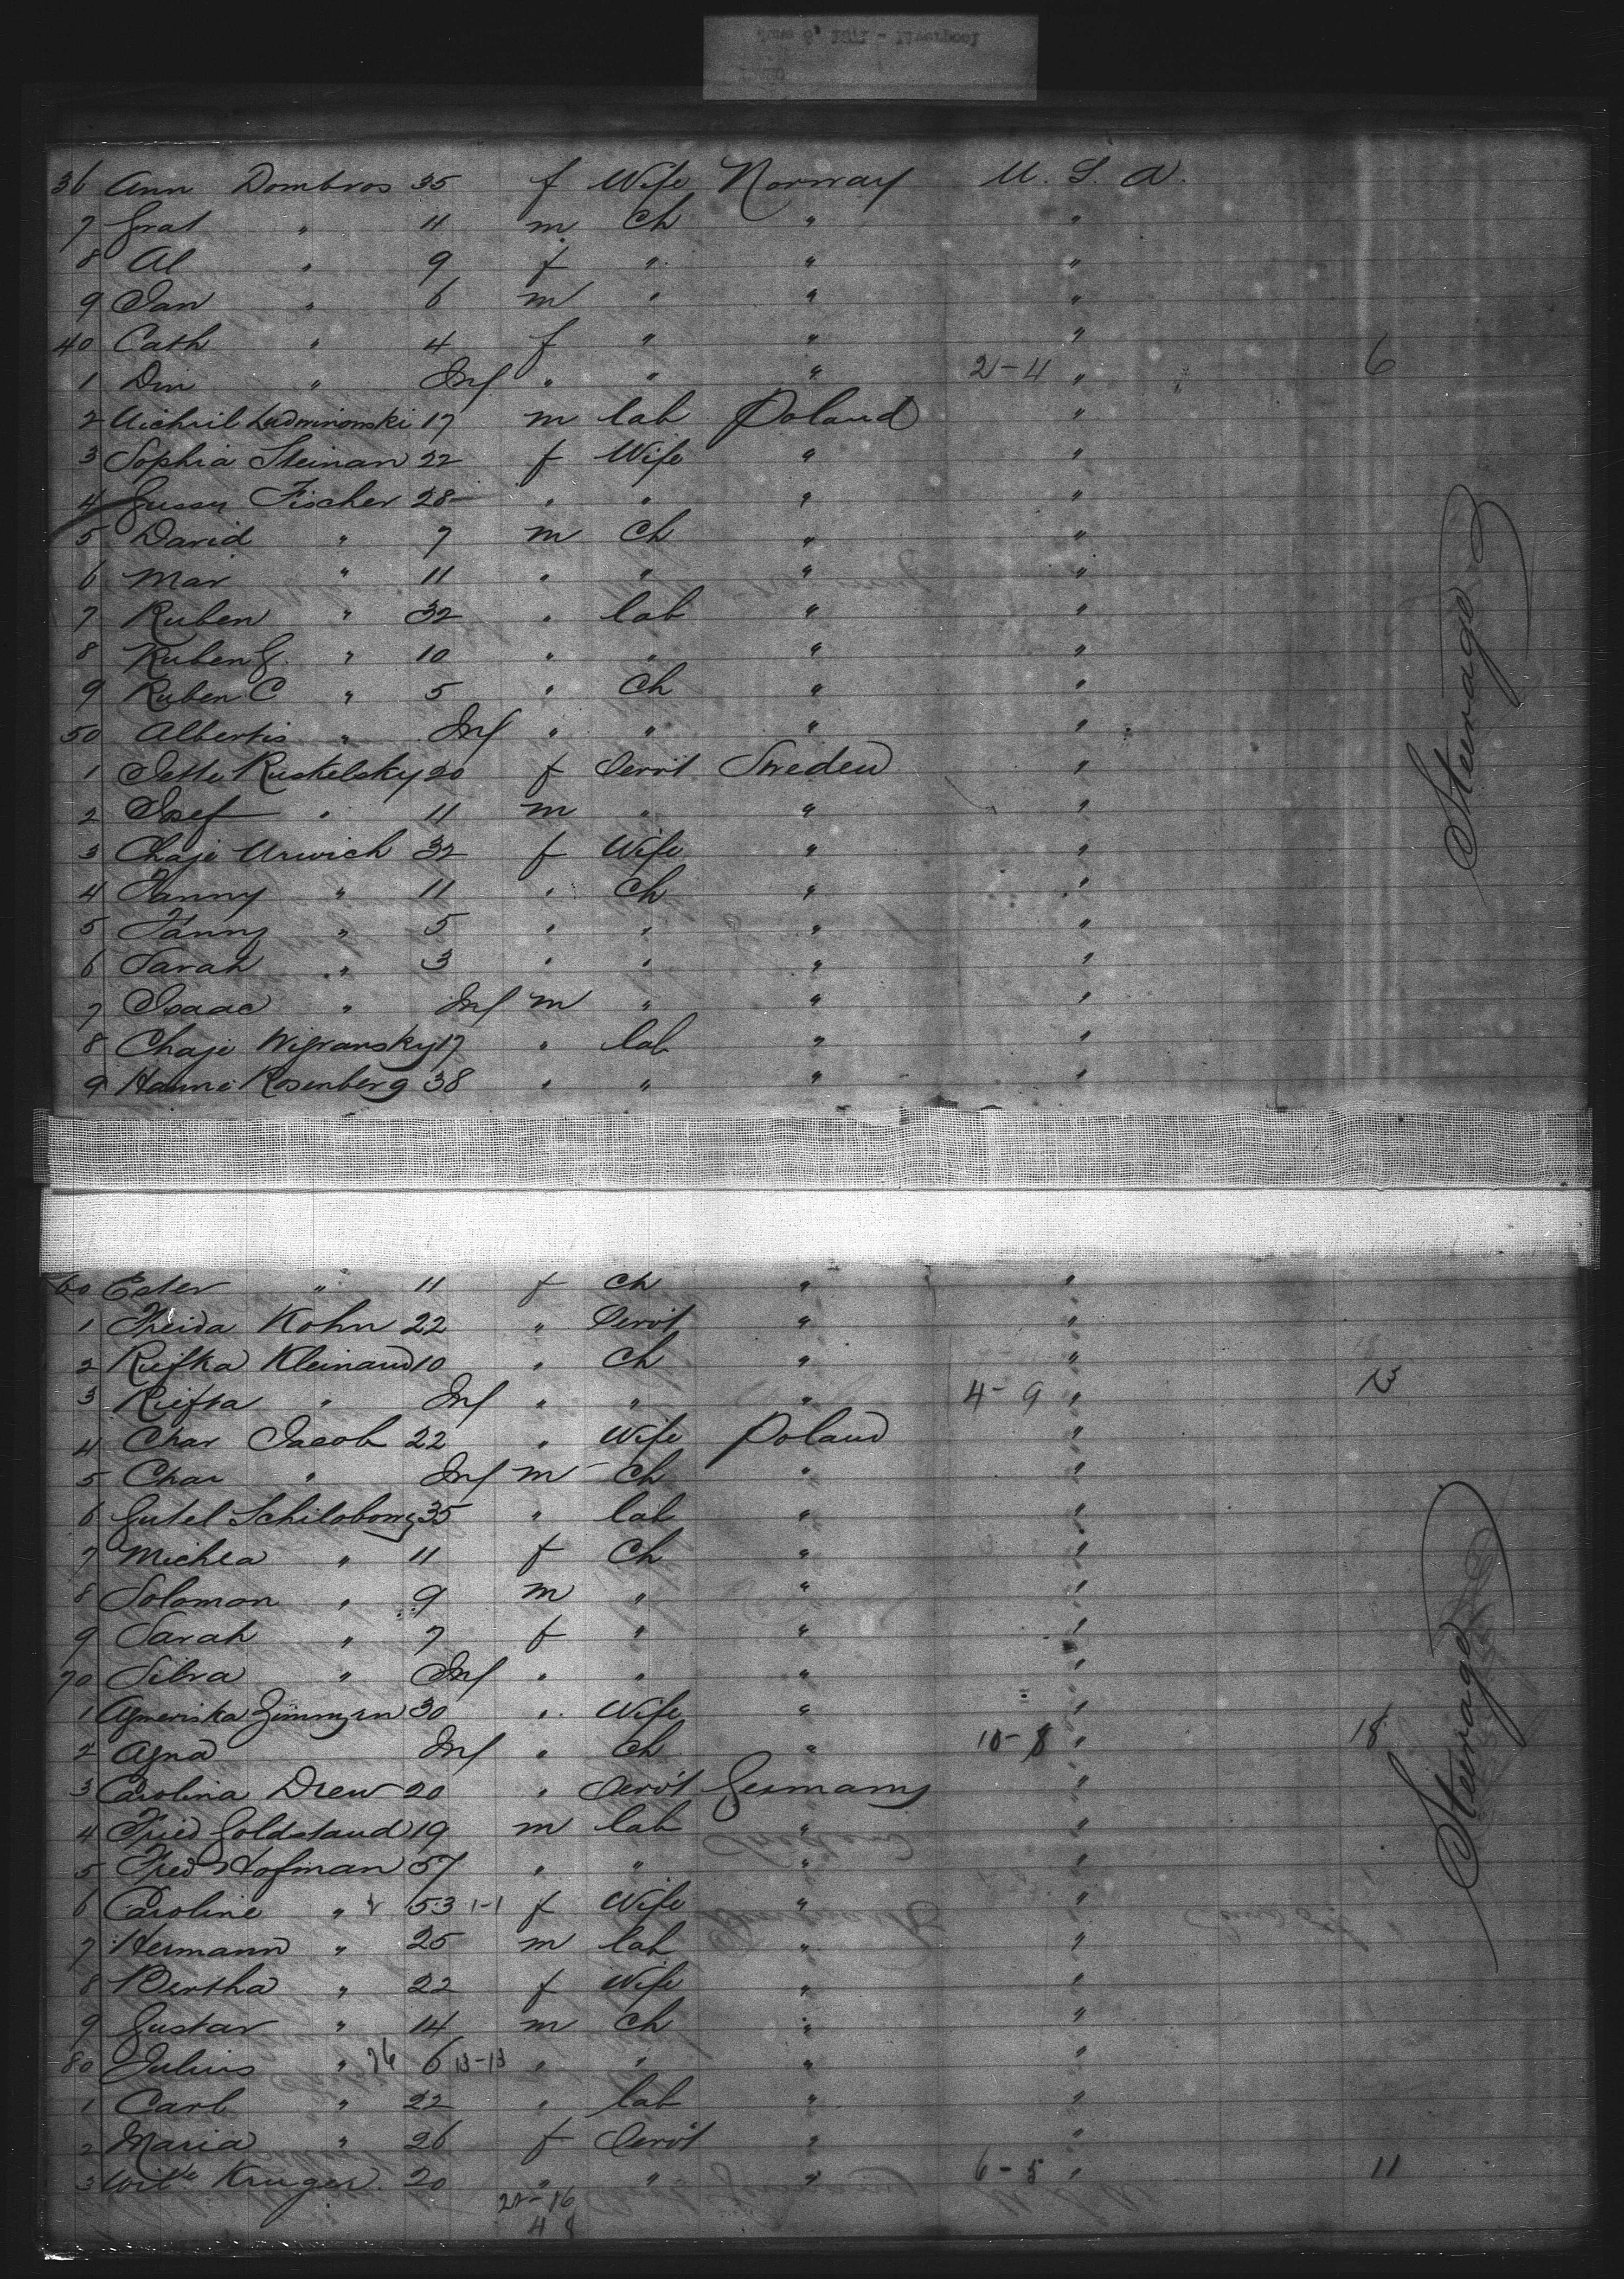 36 Ann Dombros 35 f Wife Norway U. S. A.
7 Grat " 11 m Ch " "
8 Al " 9 f " " "
9 Jan " 6 m " " "
40 Cath " 4 f " " "
1 Din " Inf " " " 2-4 " 6
2 17 m lab Poland "
3 Sophia Steinan 22 f Wife " "
4 Gussy Fischer 28 " " " "
5 David " 7 m Ch " "
6 Mar " 11 " " " "
7 Ruben " 32 " lab " "
8 Ruben G. " 10 " " " "
9 Ruben C " 5 " Ch " "
50 Albertis " Inf " " " "
1 Jette Ruskelsky 20 f Servt Sweden "
2 Josef " 11 m " " "
3 Chaje Urwich 32 f Wife " "
4 Fanny " 11 " Ch " "
5 Fanny " 5 " " " "
6 Sarah " 3 " " " "
7 Isaac " Inf m " " "
8 Chaje Wigransky 17 " lab " "
9 Hanne Rosenberg 38 " " " "
Steerage
60 Ester " 11 f Ch " "
1 Freida Kohn 22 " Servt " "
2 Riefka Kleinaud 10 " Ch " "
3 Riefka " Inf " " " 4-9 " 13
4 Char Jacob 22 " Wife Poland "
5 Char " Inf m Ch " "
6 Gutel 35 " lab " "
7 Michla " 11 f Ch " "
8 Solomon " 9 m " " "
9 Sarah " 7 f " " "
70 Silva " Inf " " " "
1 30 " Wife " "
2 Agna Inf " Ch " 10-8 " 18
3 Carolina Drew 20 " Servt Germany "
4 Fried Goldstaud 19 m lab " "
5 Fred Hofman 57 " " " "
6 Caroline " 53 1-1 f Wife " "
7 Hermann " 25 m lab " "
8 Bertha " 22 f Wife " "
9 Gustav " 14 m Ch " "
80 Julius " 26 6 13-13 " " " "
1 Carl " 22 " lab " "
2 Maria " 26 f Servt " "
3 Krieger 20 " " " 6-5 " 11
22-16
4 8
Steerage